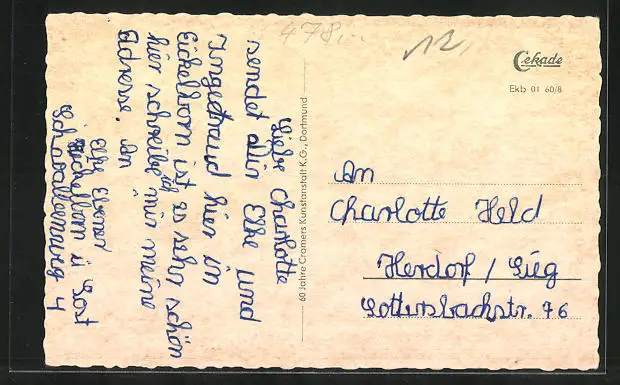 Liebe Charlotte
sendet dir Elke und
Irngedraud hier in
Eickelborn ist es sehr schön
hier schreibe ich mir meine
Adresse. An
Elke Ebener
Eickelborn ü Sost
478
12,
Cekade
Ekb 01 60/8
60 Jahre Cramers Kunstanstalt K.G., Dortmund
An
Charlotte Held
Herdorf / Sieg
Sottersbachstr. 76